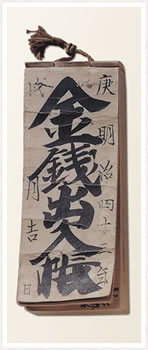 庚
明治四十三
金銭出入帳
戌
月吉日